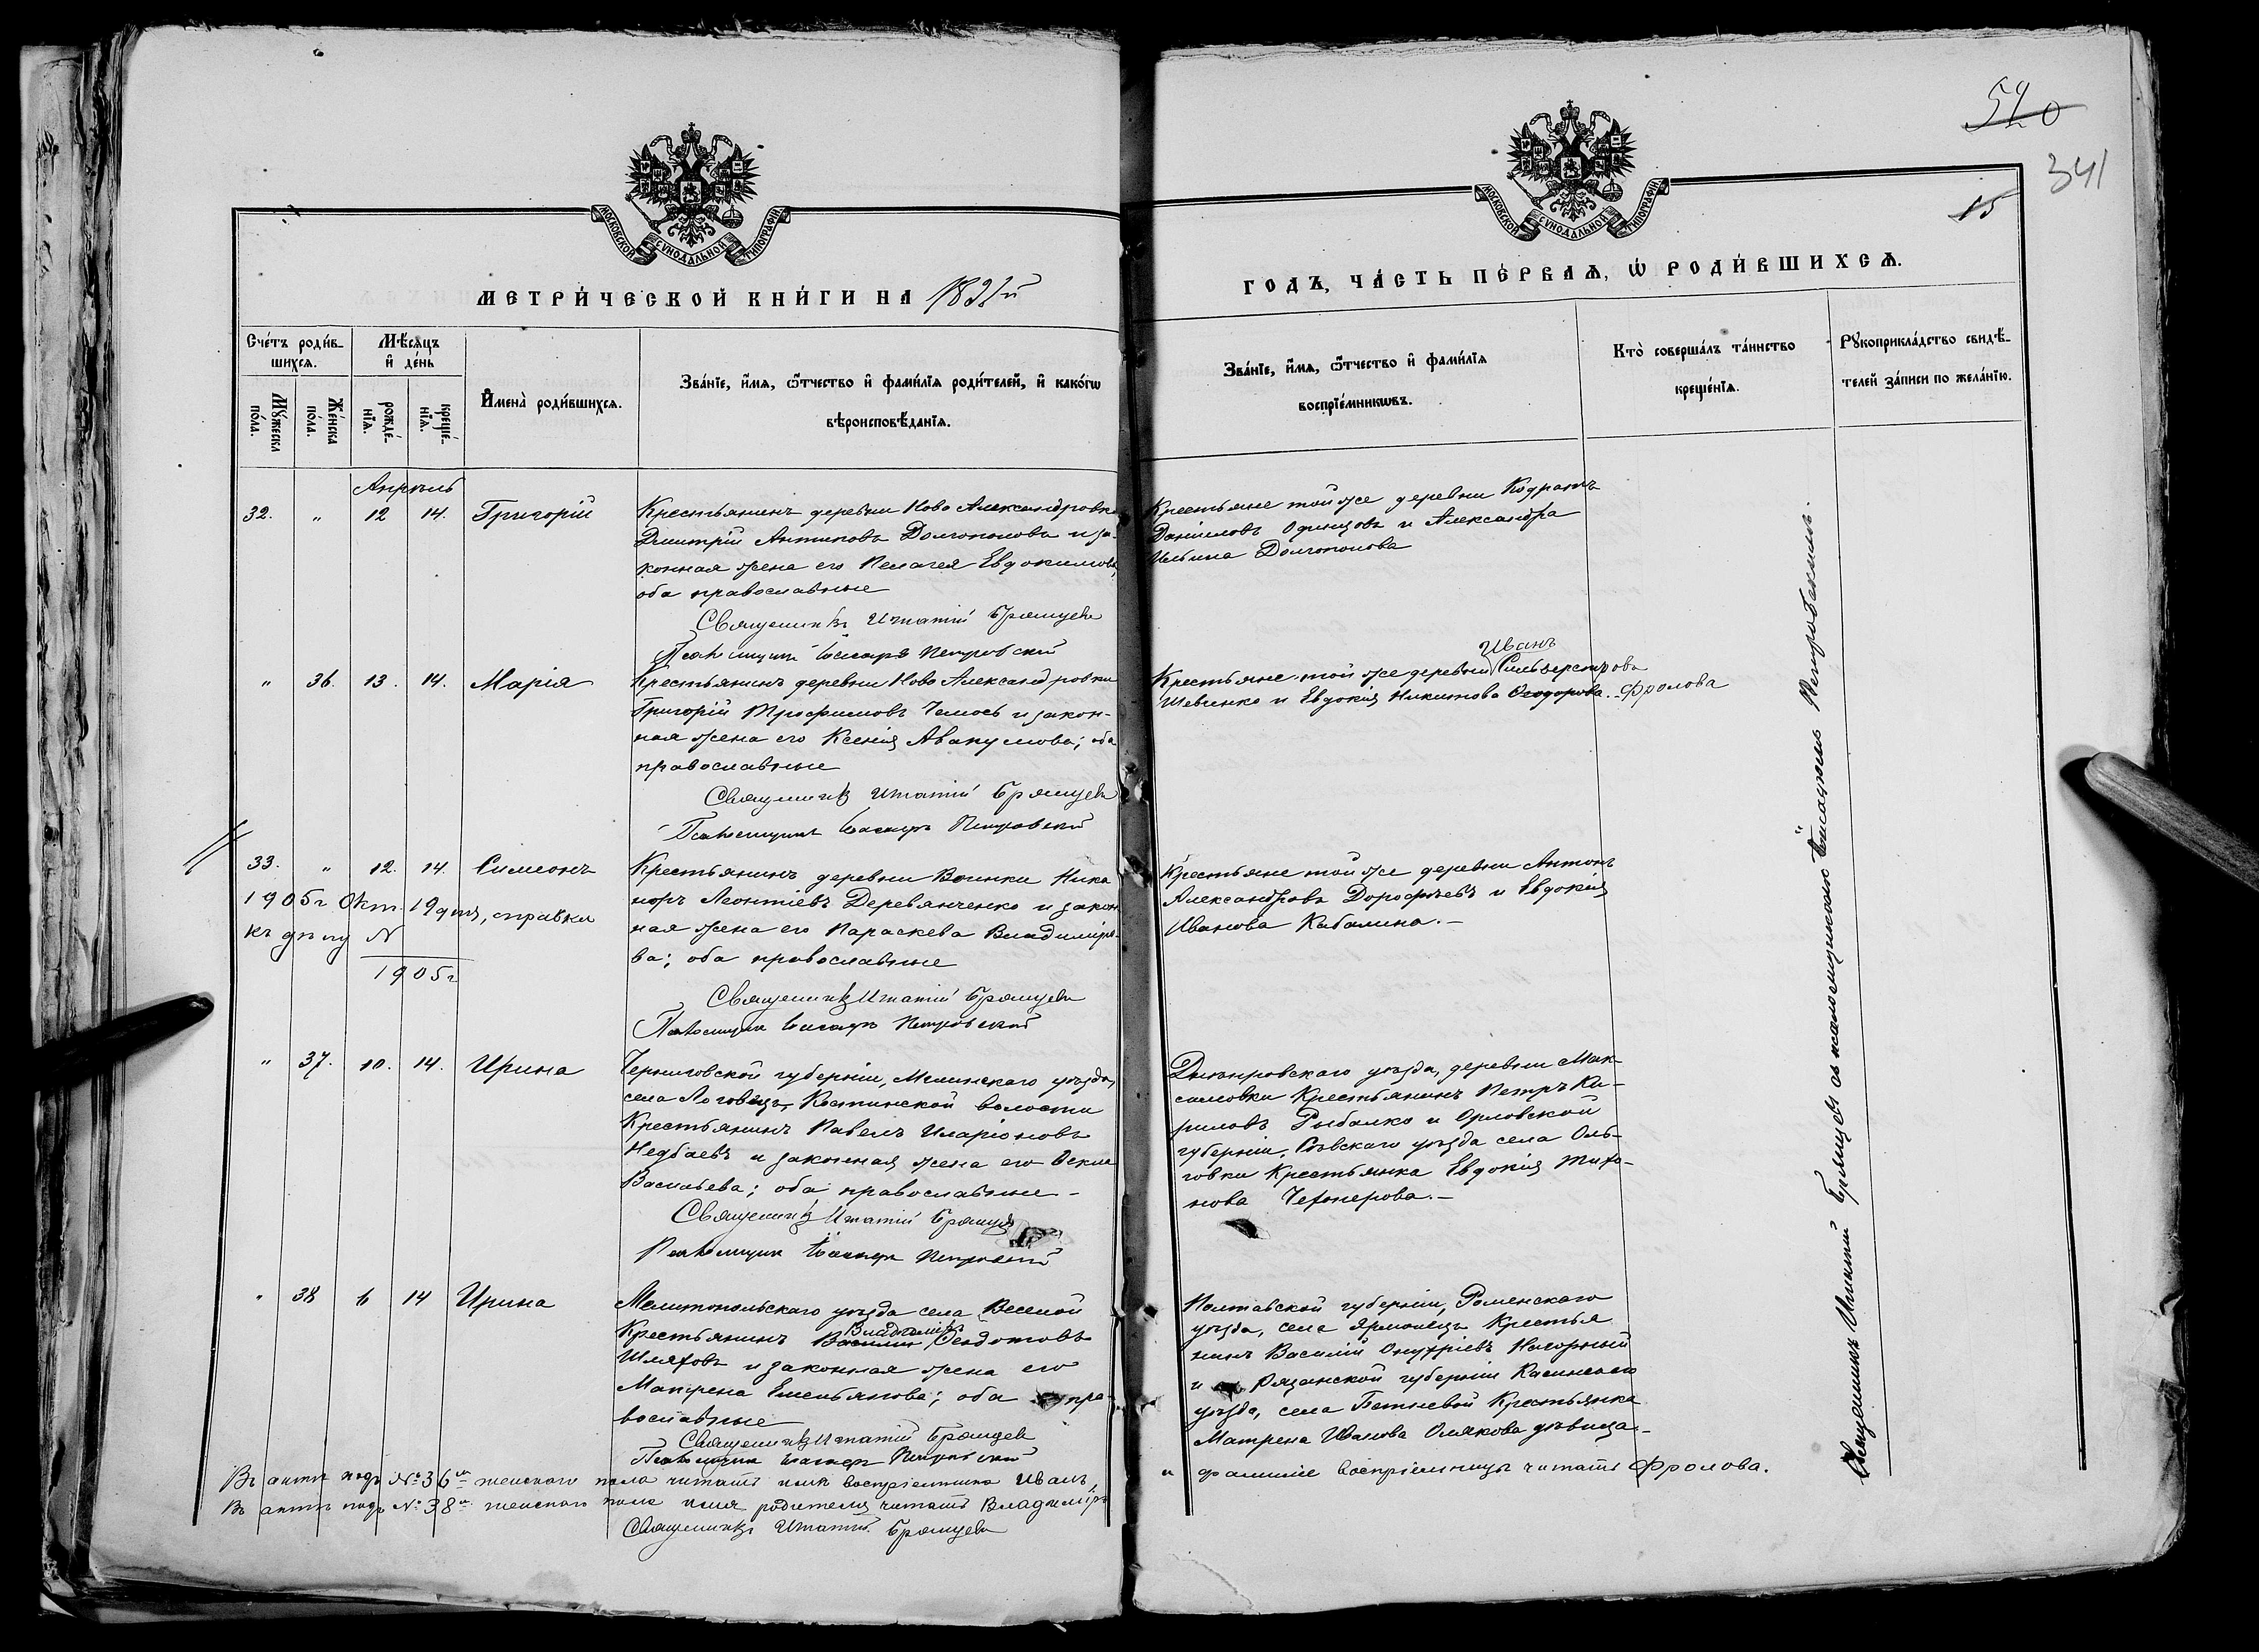 520
341
15
МОСКОВСКОЙ СѴНОДАЛЬНОЙ ТИПОГРАФІИ
МОСКОВСКОЙ СѴНОДАЛЬНОЙ ТИПОГРАФІИ
МЕТРИ́ЧЕСКОЙ КНИ́ГИ НА
ГОДЪ, ЧА́СТЬ ПЕ́РВАѦ, Ѡ҆ РОДИ́ВШИХСѦ.
Сче́тъ роди́в-
шихсѧ.
Мꙋ́жеска по́ла.
Же́нска по́ла.
Мѣ́сѧцъ
и҆ де́нь
рожде́-
нїѧ.
креще́-
нїѧ.
И҆мена̀ роди́вшихсѧ.
Зва́нїе, и҆́мѧ, ѻ҆́тчество и҆ фами́лїѧ роди́телей, и҆ како́гѡ
вѣроисповѣ́данїѧ.
Зва́нїе, и҆́мѧ, ѻ҆́тчество и҆ фами́лїѧ
воспрїе́мникѡвъ.
Кто̀ соверша́лъ та́инство
креще́нїѧ.
Рꙋкоприкла́дство свидѣ́-
телей за́писи по жела́нїю.
Апрѣль
32. " 12 14. Григорій
Крестьянинъ деревни Ново Александровки
Дмитрій Антиповъ Долгополовъ и за-
конная жена его Пелагея Евдокимова,
оба православные
Священникъ Игнатій Брянцевъ
Псаломщикъ Петровскій
Крестьяне той же деревни Кодратъ
Даніиловъ Одинцовъ и Александра
Ильина Долгополова
" 36. 13. 14. Марія
Крестьянинъ деревни Ново Александровки
Григорій Трофимовъ Чемось и закон-
ная жена его Ксенія Авакумова; оба
православные
Священникъ Игнатій Брянцевъ
Псаломщикъ Петровскій
Иванъ
Крестьяне той же деревни Сильверстровъ
Шевченко и Евдокія Никитова Ѳеодорова. - Фролова
33. " 12. 14. Симеонъ
1905г Окт. 19 дня, справка
къ дѣлу N
1905г
Крестьянинъ деревни Воинки Ника
норъ Леонтіевъ Деревянченко и закон
ная жена его Параскева Владиміро
ва; оба православные
Священникъ Игнатій Брянцевъ
Псаломщикъ Петровскій
Крестьяне той же деревни Антонъ
Александровъ Дорофѣевъ и Евдокія
Иванова Кабалина. -
" 37. 10. 14. Ирина
Черниговской губерніи, Мглинскаго уѣзда,
села Логовецъ, Костинской волости
Крестьянинъ Павелъ Иларіоновъ
Недбаевъ и законная жена его
Васильева; оба православные -
Священникъ Игнатій Брянцевъ
Псаломщикъ Петровскій
Днѣпровскаго уѣзда, деревни Мак-
симовки Крестьянинъ Петръ Ки-
риловъ Рыбалко и Орловской
губерніи, Сѣвскаго уѣзда села Оль-
говки Крестьянка Евдокія Тихо-
нова Чехнерова. -
" 38 6 14 Ирина
Мелитопольскаго уѣзда села Веселой
Владиміръ
Крестьянинъ Василій Ѳеодотовъ
Шляховъ и законная жена его
Матрена Емельянова; оба пра-
вославные
Священникъ Игнатій Брянцевъ
Псаломщикъ Петровскій
Полтавской губерніи, Роменскаго
уѣзда, села Ярмолинцъ Крестья
нинъ Василій Онуфріевъ Нагорный
и Рязанской губерніи Касимскаго
уѣзда, села Крестьянка
Матрена Иванова дѣвица -
Въ актѣ подъ №36м женскаго пола читать имя воспріемника Иванъ,
и фамиліе воспріемницы читать Фролова.
Въ актѣ подъ №38м женскаго пола имя родителя читать Владиміръ
Священникъ Игнатій Брянцевъ
Священникъ Игнатій Брянцевъ съ псаломщикомъ Петровскимъ.